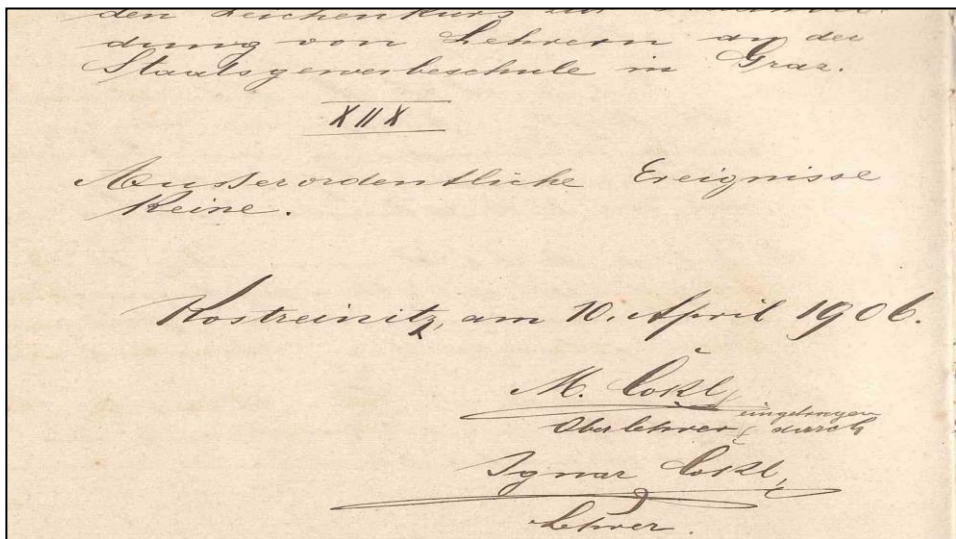 den Zeichenkurs zur
dung von Lehrern an der
Staatsgewerbeschule in Graz.
XIIX
Ausserordentliche Ereignisse
Keine.
Kostreinitz, am 10. April 1906.
M. Čokl,
Oberlehrer, eingetragen
durch
Ignaz Čokl,
Lehrer.